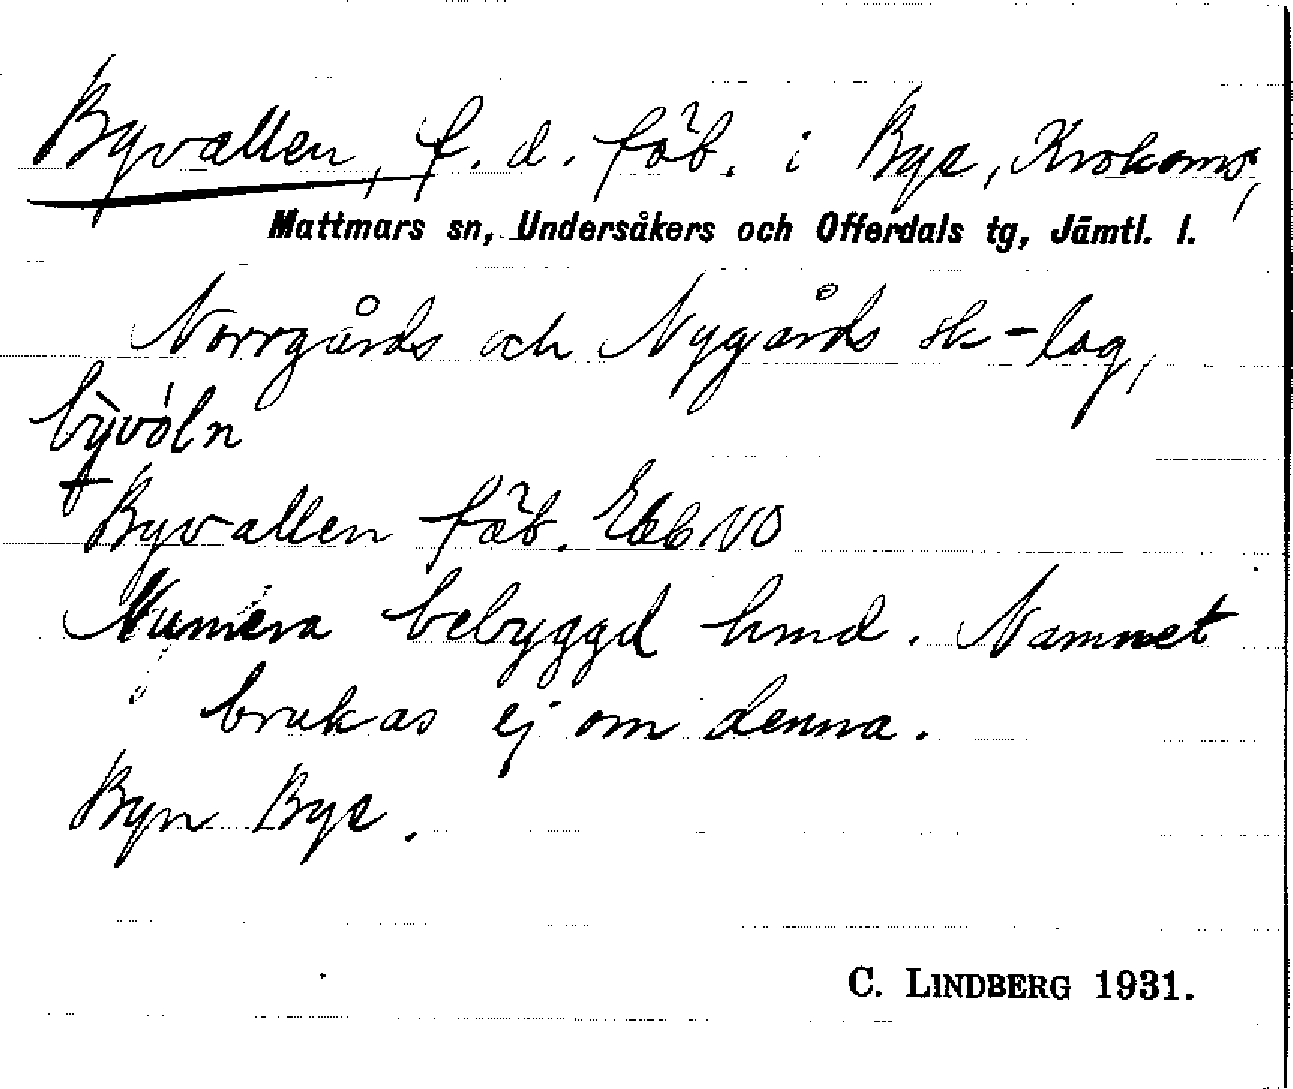 Byvallen, f. d. fäb. i Bye, Krokoms,
Mattmars sn, Undersåkers och Offerdals tg, Jämtl. l.
Norrgårds och Nygårds sk-lag,
bỳvóln
Byvallen fäb. Ebl NO
Numera bebyggd hmd. Namnet
brukas ej om denna.
Byn Bye.
C. LINDBERG 1931.